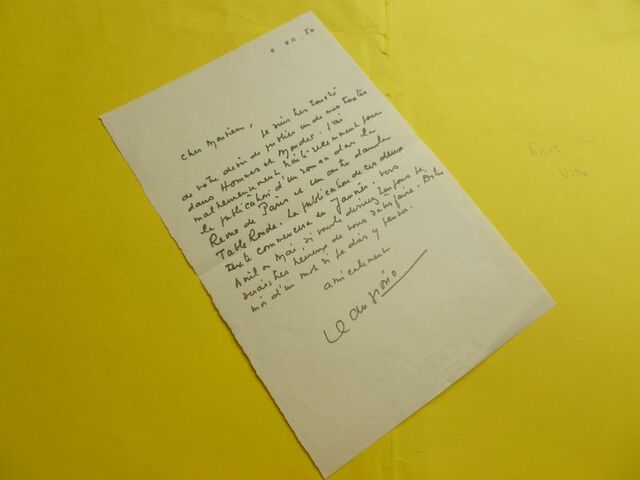 XII. 50
Cher Monsieur,
Je suis très touché
de votre désir de publier un de mes textes
dans Hommes et Mondes. J'ai
malheureusement traité récemment pour
la publication d'un roman dans la
Revue de Paris et un autre dans la
Table Ronde. La publication de ces deux
textes commencera en Janvier. Vers
Avril ou Mai, si vous le désirez toujours, je
serais très heureux de vous satisfaire.
moi d'un mot si je dois y penser.
amicalement